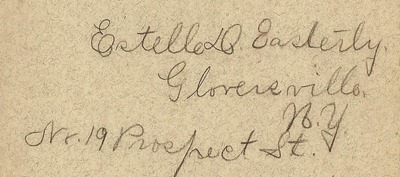 Estelle D. Easterly.
Gloversville.
N.Y.
No. 19 Prospect St.